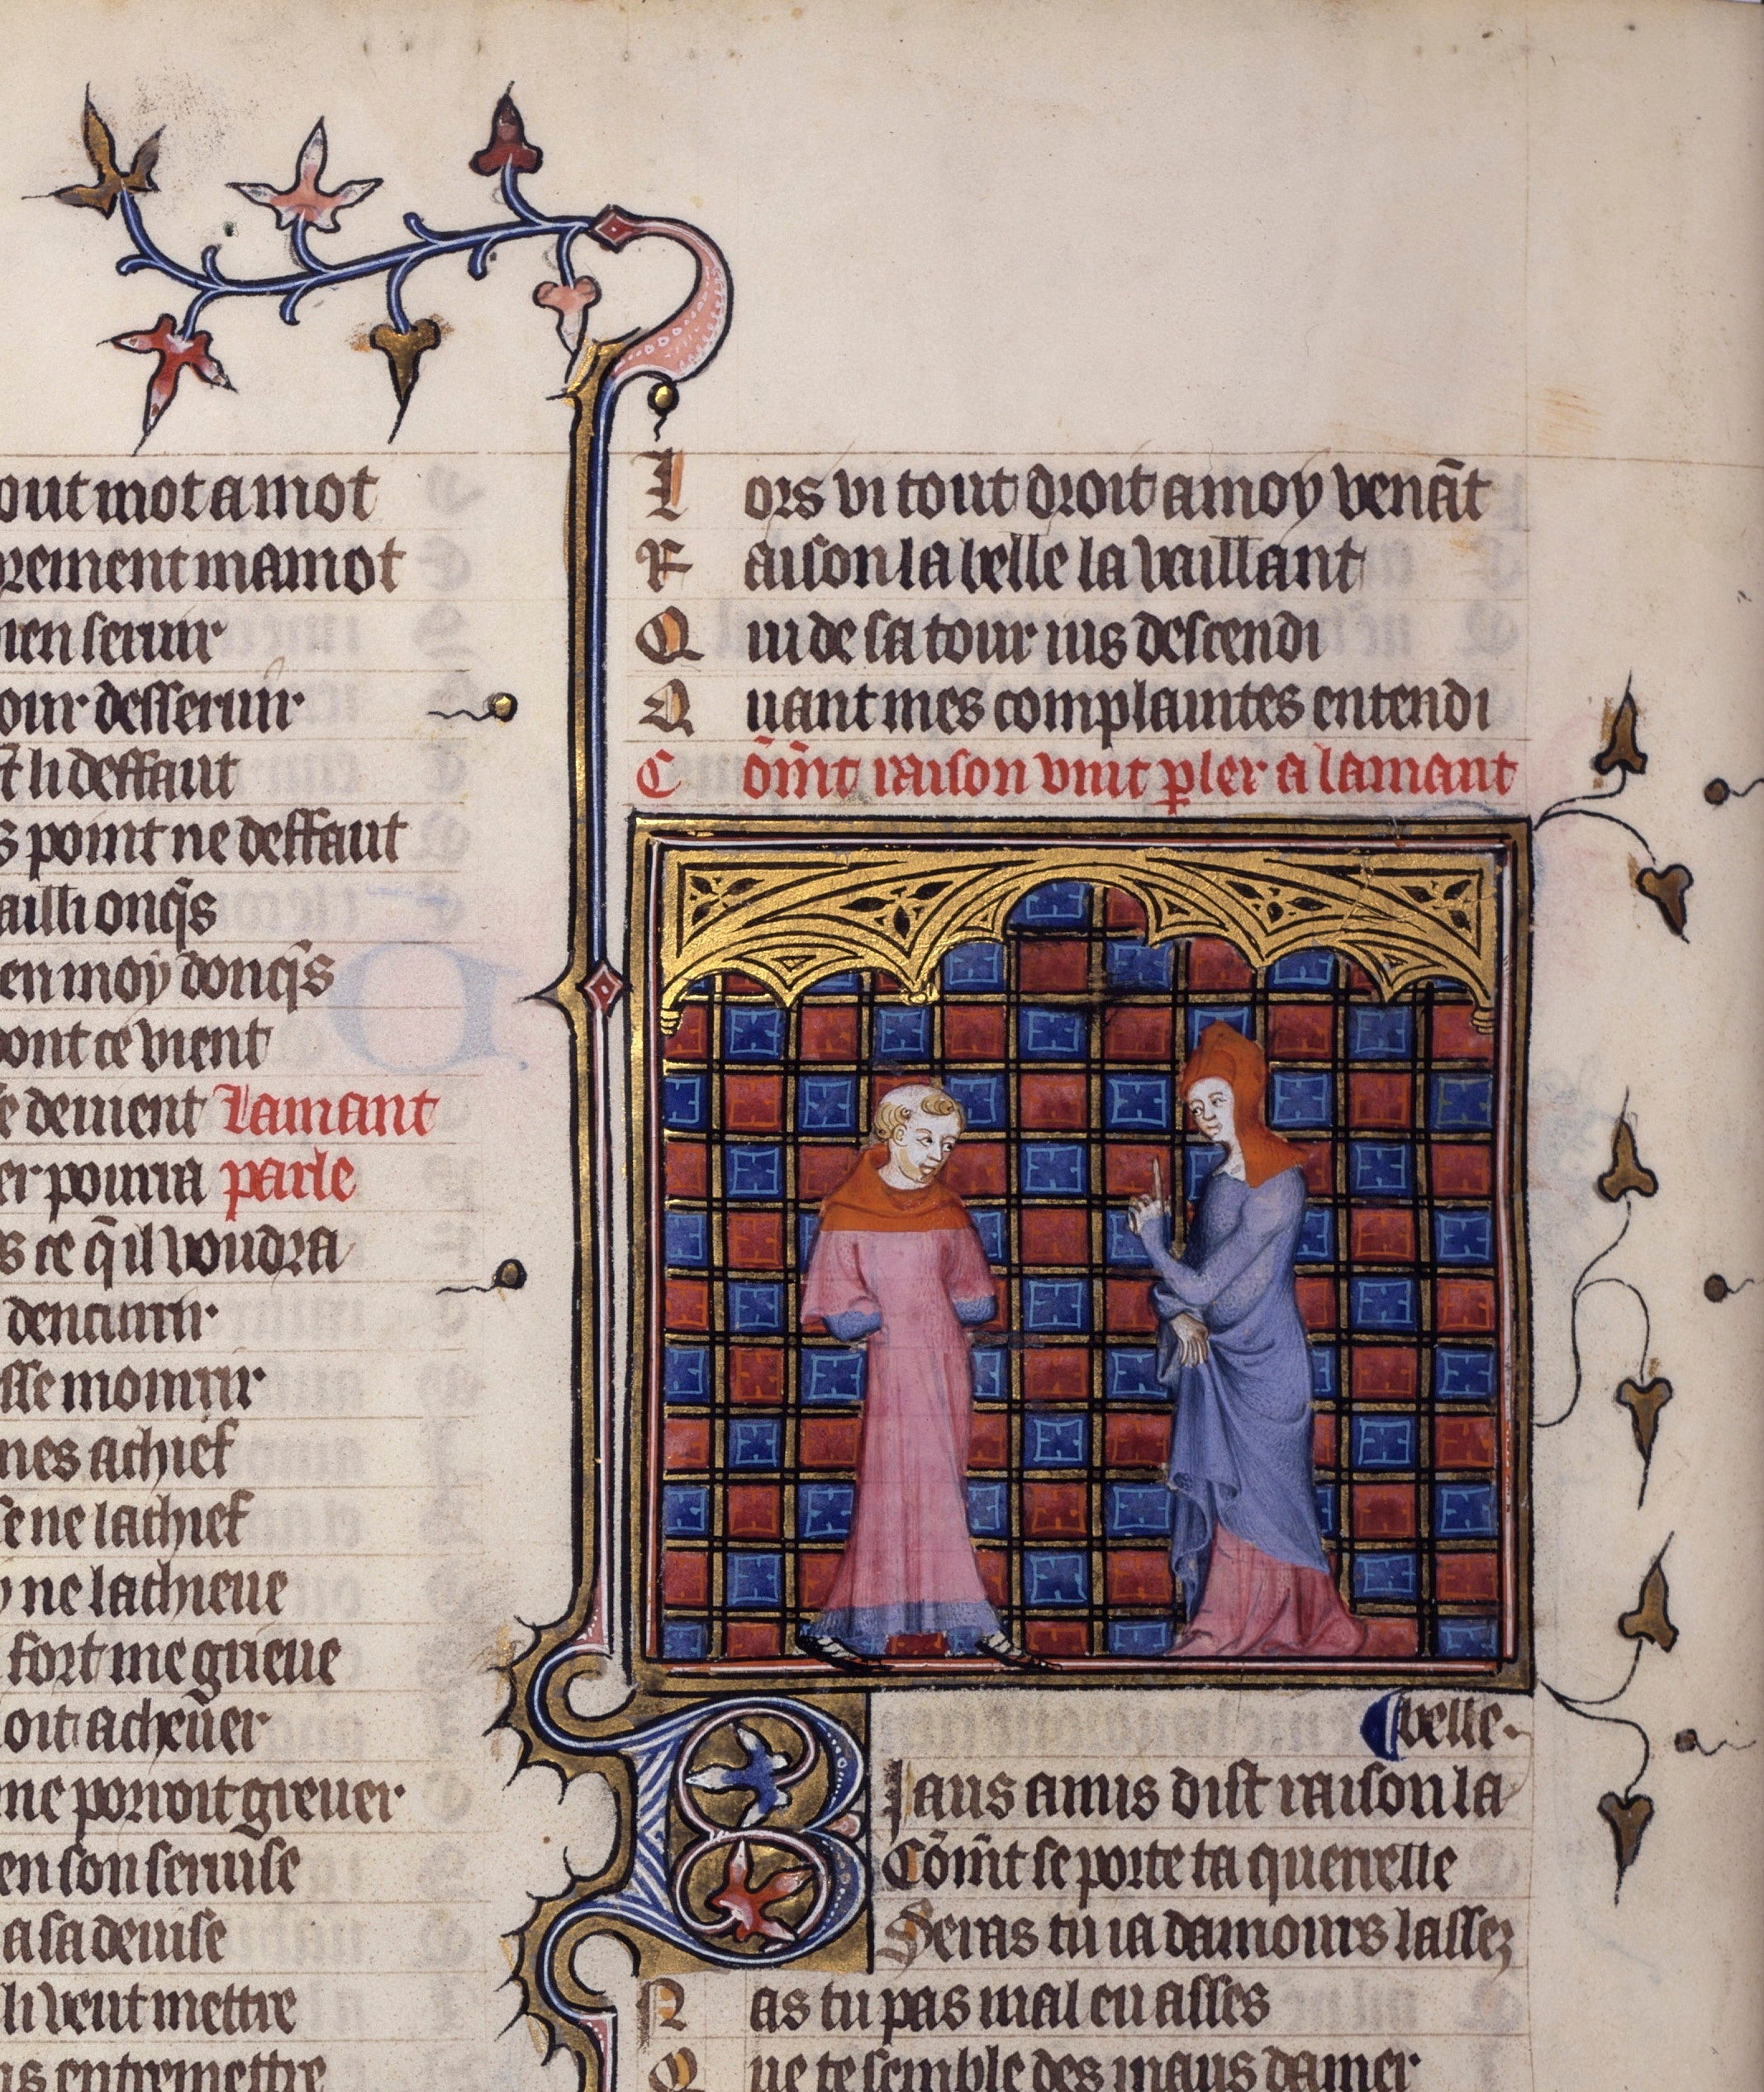 out mot a mot
rement mamot
en seruir
our desseruir
t li deffaut
s point ne deffaut
ailli onq̄s
en moy donq̄s
dont ce vient
e deuient Lamant
er pourra parle
s ce q̄ il voudra
dencurir
sse mourir
mes achief
se ne lachief
y ne lachieue
fort me grieue
oit acheuer
me porroit greuer
en son seruise
a sa deuise
li veut mettre
us entremettre
L ors vi tout droit a moy venāt
R aison la belle la vaillant
Q ui de sa tour ius descendi
Q uant mes complaintes entendi
C ōm̄t raison vint pler a lamant
belle.
B iaus amis dist raison la
Cōm̄t se porte ta querelle
Seras tu ia damours lassez
N as tu pas mal eu asses
Q ue te semble des maus damer